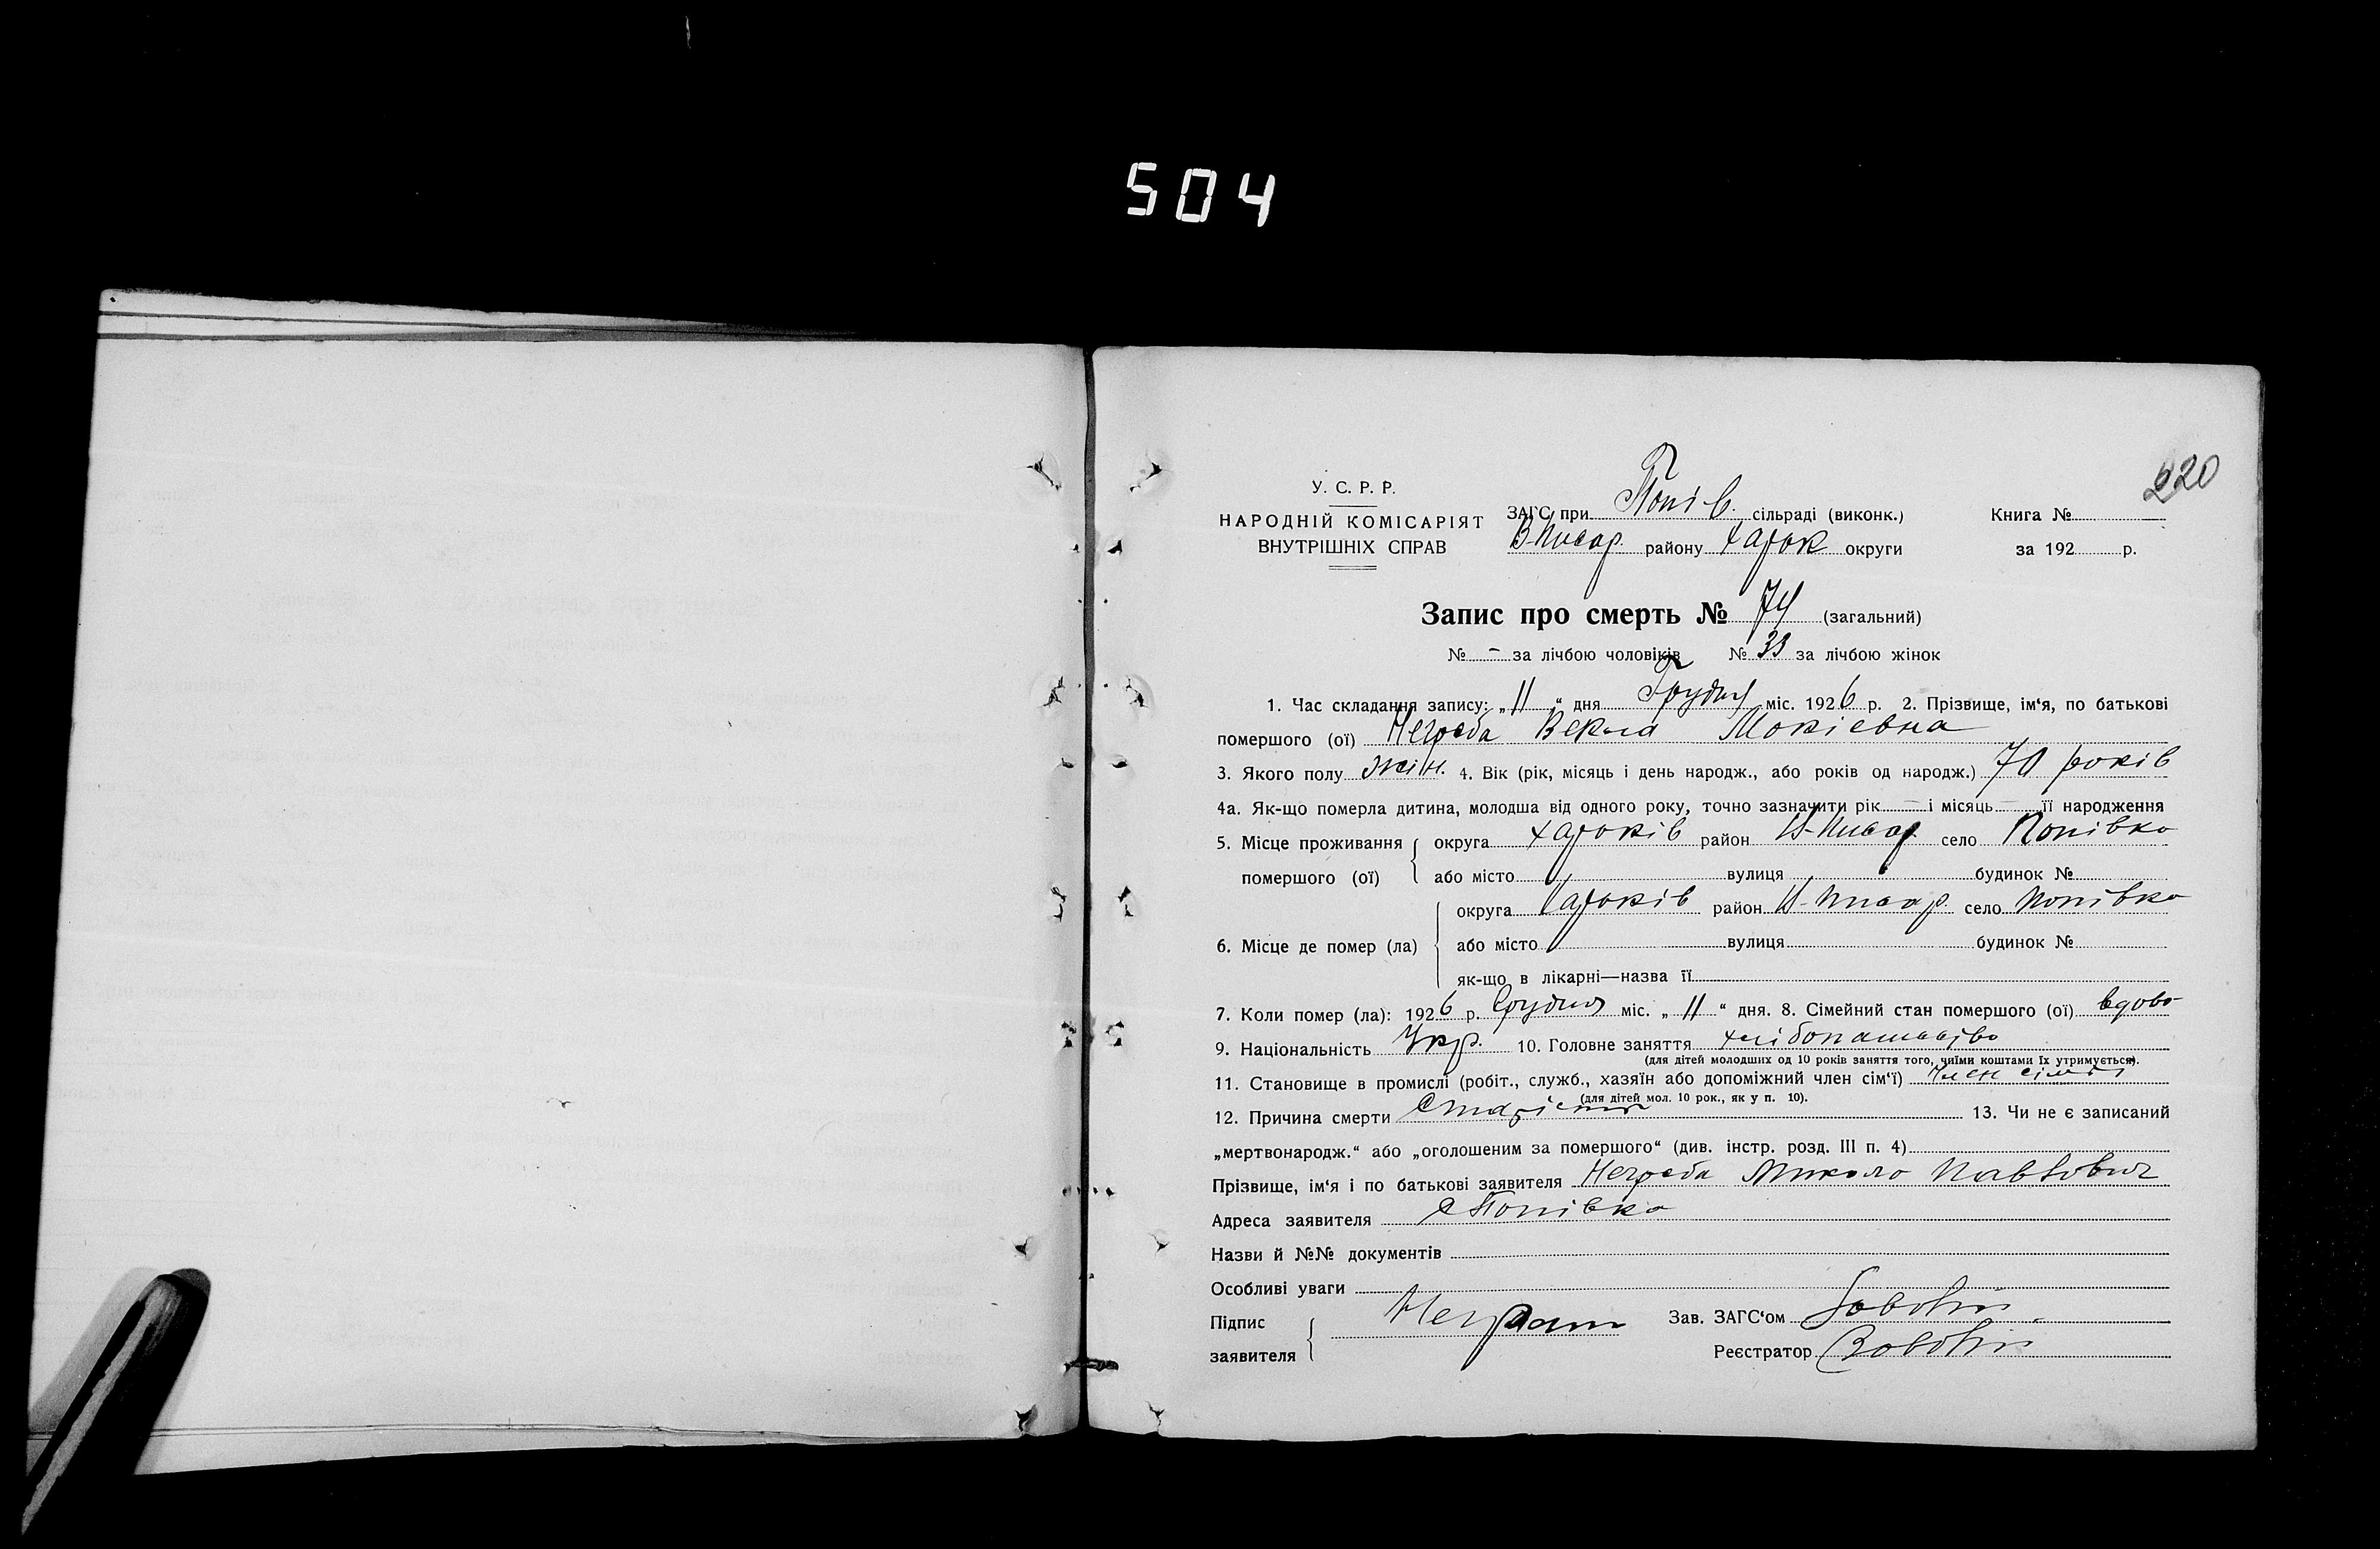 504
220
У. С. Р. Р.
НАРОДНІЙ КОМІСАРІЯТ
ВНУТРІШНІХ СПРАВ
ЗАГС при Попів. сільраді (виконк.)
В-Писар. району Харок округи
Книга №
за 192 р.
Запис про смерть № 74 (загальний)
№ - за лічбою чоловіків № 33 за лічбою жінок
1. Час складання запису: „ 11 “ дня Грудня міс. 1926 р. 2. Прізвище, ім‘я, по батькові
помершого (ої) Негреба Векла Мокієвна
3. Якого полу жін. 4. Вік (рік, місяць і день народж., або років од народж.) 70 років
4а. Як-що померла дитина, молодша від одного року, точно зазначити рік — і місяць — її народження
5. Місце проживання помершого (ої)
округа Хароків район В-Писар село Попівка
або місто вулиця будинок №
6. Місце де помер (ла)
округа Хароків район В-Писар. село Попівка
або місто вулиця будинок №
як-що в лікарні—назва її
7. Коли помер (ла): 1926 р. Грудня міс. „ 11 “ дня. 8. Сімейний стан помершого (ої) вдова
9. Національність Укр. 10. Головне заняття хлібопашество
(для дітей молодших од 10 років заняття того, чиїми коштами їх утримується).
11. Становище в промислі (робіт., служб., хазяїн або допоміжний член сім‘ї) член сімї
(для дітей мол. 10 рок., як у п. 10).
12. Причина смерти Старість 13. Чи не є записаний
„мертвонародж.“ або „оголошеним за помершого“ (див. інстр. розд. III п. 4)
Прізвище, ім‘я і по батькові заявителя Негреба Микола Павлович
Адреса заявителя с Попівка
Назви й №№ документів
Особливі уваги
Підпис заявителя
Зав. ЗАГС‘ом
Реєстратор